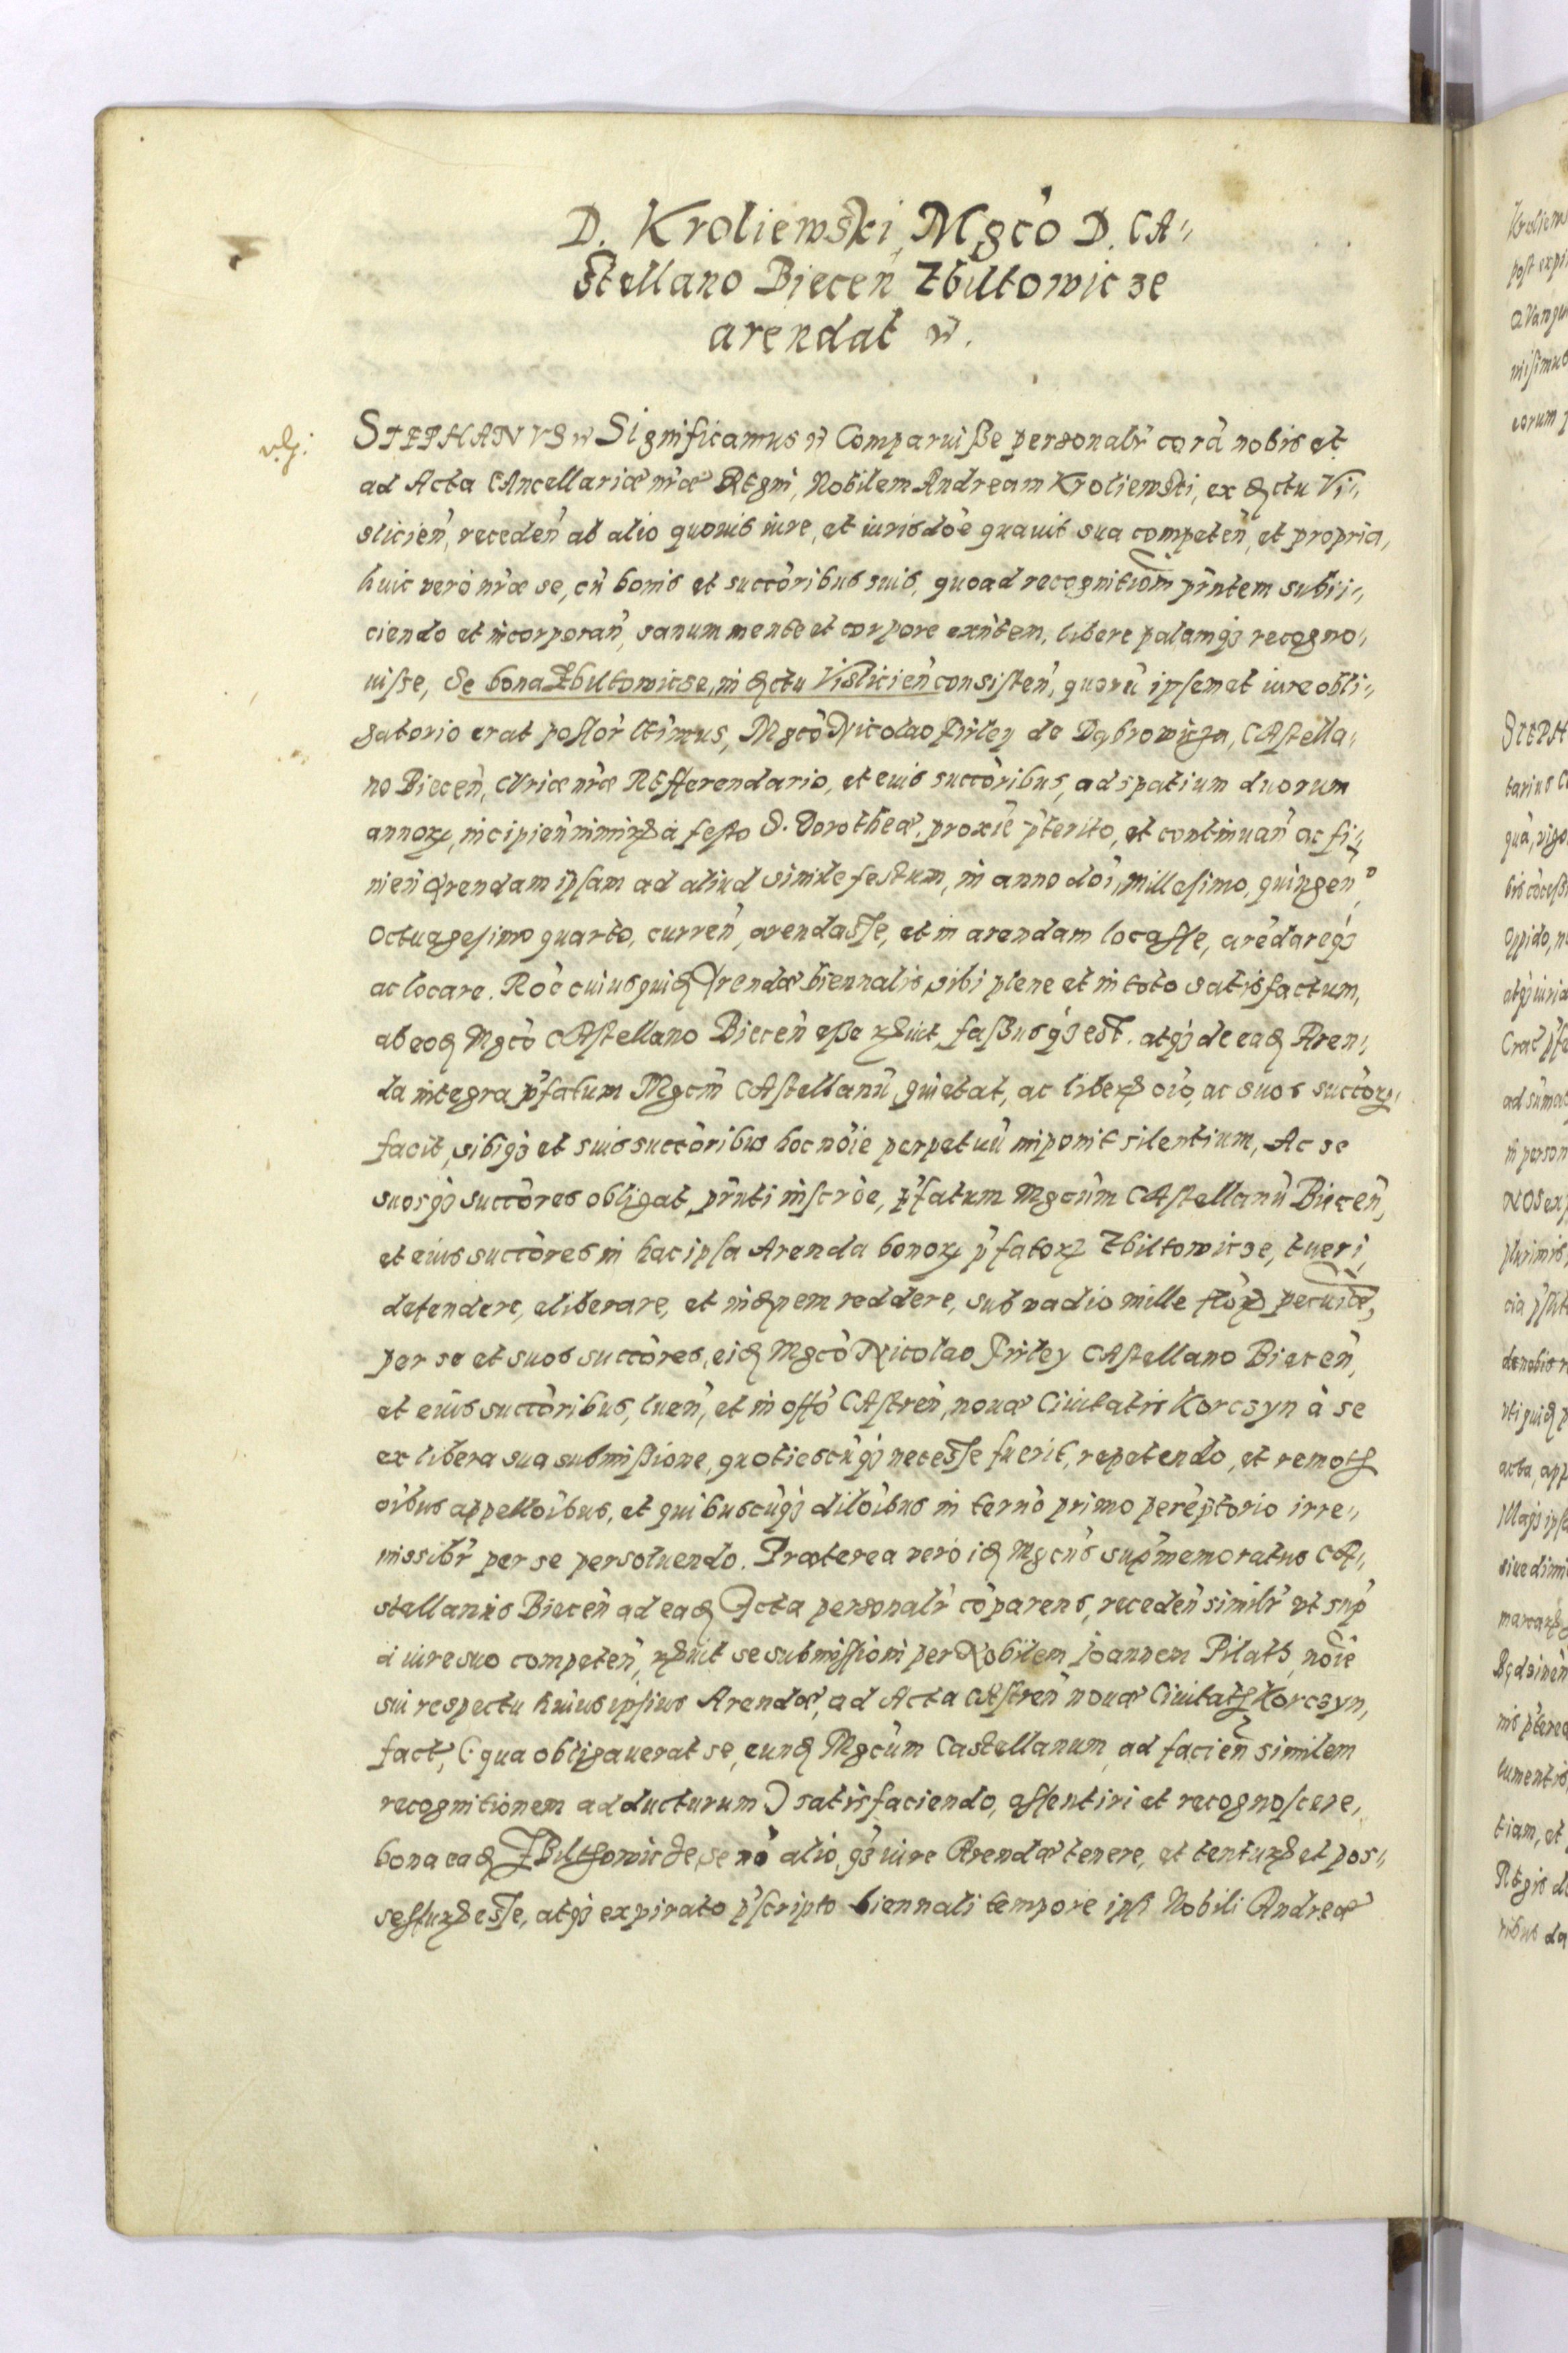 D. Kroliewski Mgcò D. CA⸗
stellano Biecen̄ Zbiltowicze
arendat
STEPHANVS Significamus Comparuiße personalr̄ corā nobis et
ad Acta CAncellariæ nr̄æ REgni, Nobilem Andream Kroliewski, ex ꝗctu Vi⸗
slicien̄, receden̄ ab alio quouis iure, et iurisdōe quauit sua competen̄, et propria,
huic vero nr̄æ se, cū bonis et succōribus suis, quoad recognitiōm pr̄ntem subii⸗
ciendo et incorporan̄, sanum mente et corpore exn̄tem, libere palamqꝫ recogno⸗
uisse, Se bona Zbiltowicze, in ꝗctu Vislicien̄ consisten̄, quorū ipsemet iure obli⸗
gatorio erat possor̄ ltīmus, Mgcò Nicolao Firley de Dąbrowicza, CAstella⸗
no Biecen̄, CVriæ nr̄æ REfferendario, et eius succōribus, ad spatium duorum
annoꝝ, incipien̄ nimiꝝ à festo S. Dorotheæ, proxīe p̄terito, et continuan̄ ac fi⸗
nien̄ Arendam ipsam ad aliud simile festum, in anno doī, millesimo, quingen⁰
Octuagesimo quarto, curren̄, arendasse, et in arendam locasse, arēdareqꝫ
ac locare. Roē cuiusquiꝗ Arendæ biennalis, sibi plene et in toto satisfactum,
ab eoꝗ Mgcò CAstellano Biecen̄ eße ꝝuit, faßusqꝫ est. atqꝫ de eaꝗ Aren⸗
da integra p̄fatum Mgcm̄ CAstellanū, quietat, ac libeꝝ oīo, ac suos succoꝝ
facit, sibiqꝫ et suis succōribus hoc nōie perpetuū imponit silentium, Ac se
suosqꝫ succōres obligat, pr̄nti inscrōe, p̄fatum Mgcūm CAstellanū Biecen̄,
et eius succōres in hac ipsa Arenda bonoꝝ p̄fatoꝝ Zbiltowicze, tueri,
defendere, eliberare, et inꝗpnem reddere, sub vadio mille floꝝ pecuniæ,
per se et suos succōres, eiꝗ Mgcò Nicolao Firley CAstellano Biecen̄,
et eius succōribus, luen̄, et in offō CAstren̄, nouæ Ciuitatis Korczyn à se
ex libera sua submißione, quotiescūqꝫ necesse fuerit, repetendo, et remotꝭ
oībus appellōibus, et quibuscūqꝫ dilōibus in ternō primo perēptorio irre⸗
missibr̄ per se persoluendo. Præterea vero iꝗ Mgcūs suprmemoratus CA⸗
stellanus Biecen̄ ad eaꝗ Acta personalr̄ cōparens, receden̄ similr̄ vt supr̄
à iure suo competen̄, ꝝuit se submissioni per Nobilem Joannem Pilats, nōie
sui respectu huius ipsius Arendæ, ad Acta CAstren̄ nouæ Ciuitatꝭ Korczyn,
fact, (qua obligauerat se, eunꝗ Mgcūm Castellanum, ad facien̄ similem
recognitionem adducturum) satisfaciendo, assentiri et recognoscere,
bona eaꝗ Zbilthowicze, se nō alio, qꝫ iure Arendæ tenere, et tentuꝝ et pos⸗
sessuꝝ esse, atqꝫ expirato p̄scripto biennali tempore ipsi Nobili Andreæ